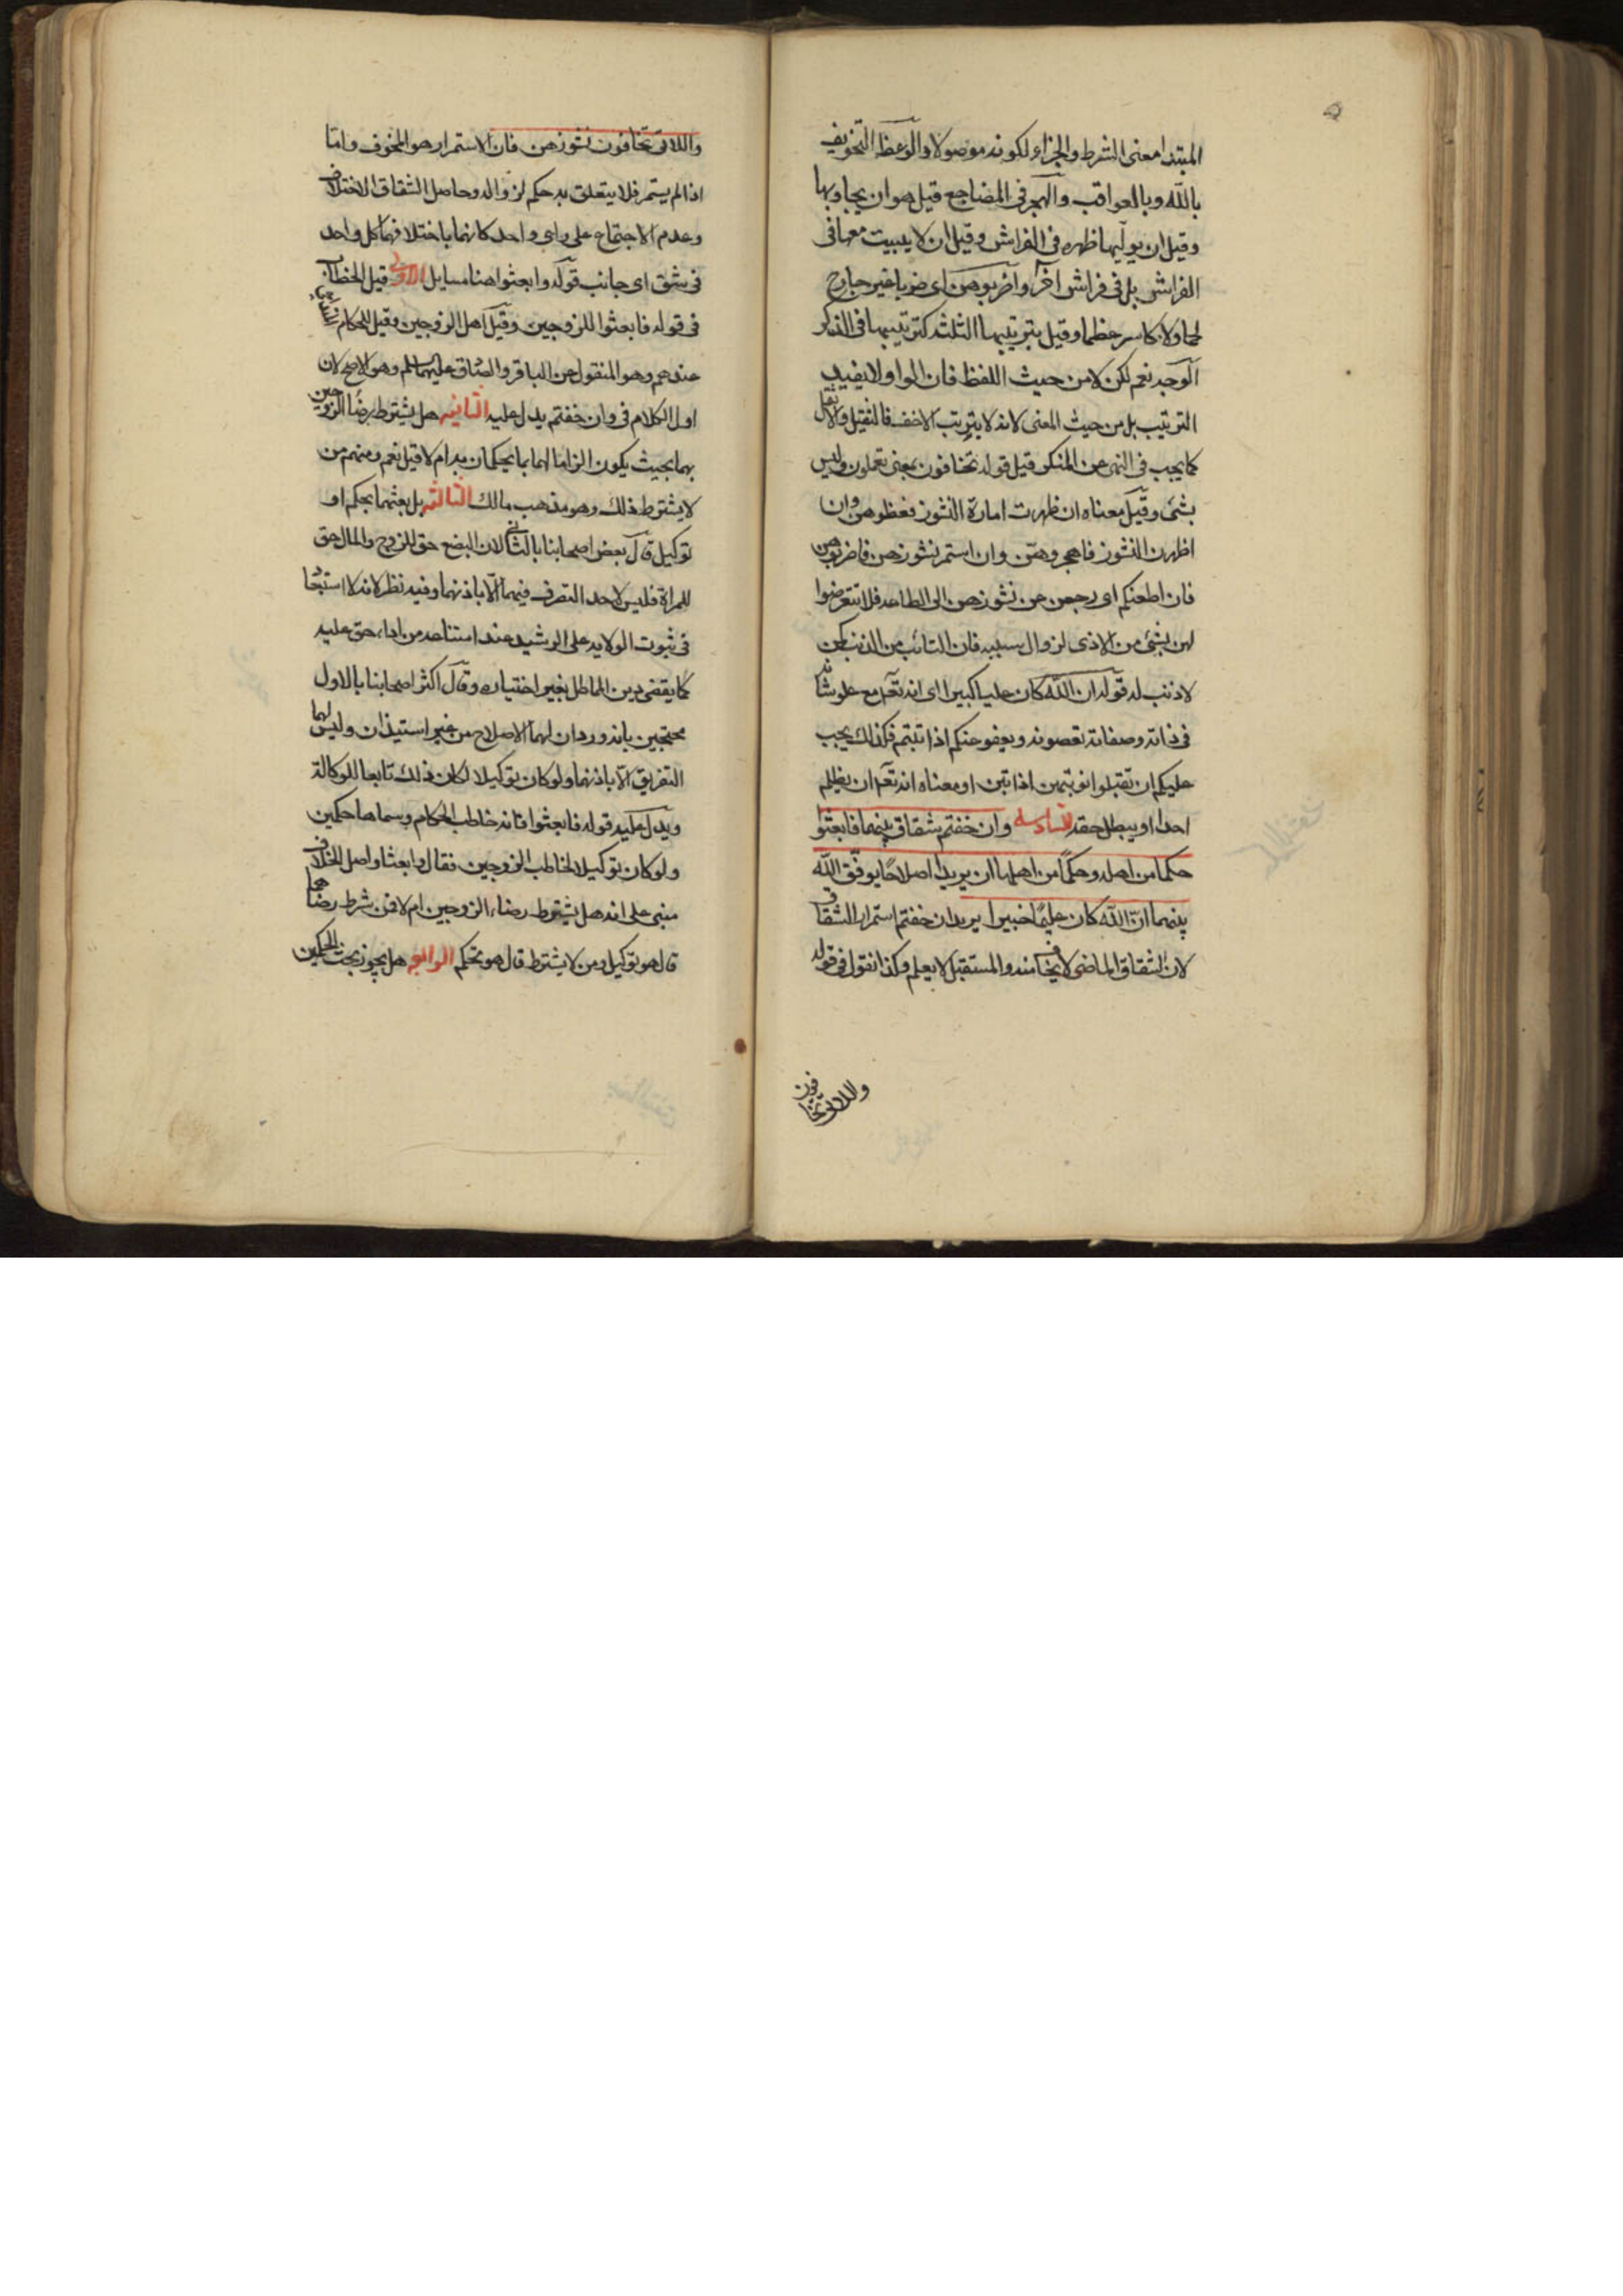 المبتدا معنى الشرط والجزاء لكونه موصولا والوعظ التخويف
بالله وبالعواقب والهجر فى المضاجع قيل هو ان يجا وبها
وقيل ان يوليها ظهره فى الفراش وقيل ان لا يبيت معها فى
الفراش بل فى فراش آخر واضربوهن اى ضربا غير جارح
لحما ولا كاسر عظما وقيل بترتيبها الثلثه كترتيبها فى الذكر
الوجه نعم لكن لا من حيث اللفظ فان الواو لا يفيد
الترتيب بل من حيث المعنى لانه لا يترتب الاخف فالثقيل والاثقل
كما يجب فى النهى عن المنكر قيل قوله تخافون بمعنى تعلمون وليس
بشئ وقيل معناه ان ظهرت امارة النشوز فعظوهن وان
اظهرن النشوز فاهجروهن وان استمر نشوزهن فاضربوهن
فان اطعنكم اى رجعن عن نشوزهن الى الطاعه فلا تتعرضوا
لهن بشئ من الاذى لزوال سببه فان التائب من الذنب كمن
لا ذنب له قوله ان الله كان عليا كبيرا اى انه تعالى مع علو شانه
فى ذاته وصفاته تعصونه ويعفو عنكم اذا تبتم فكذلك يجب
عليكم ان تقبلوا توبتهن اذا تبن او معناه انه تعالى ان يظلم
احدا او يبطل حقه السادسه وان خفتم شقاق بينهما فابعثوا
حكما من اهله وحكما من اهلها ان يريدا اصلاحا يوفق الله
بينهما ان الله كان عليما خبيرا يريد ان خفتم استمرار الشقاق
لان الشقاق الماضى لا يخاف منه والمستقبل لا يعلم وكذا نقول فى قوله
واللاتى تخافون
واللاتى تخافون نشوزهن فان الاستمرار هو المخوف واما
اذا لم يستمر فلا يتعلق به حكم لزواله وحاصل الشقاق الاختلاف
وعدم الاجتماع على راى واحد كانهما باختلافهما كل واحد
فى شق اى جانب قوله وابعثوا هنا مسايل الاولى قيل الخطاب
فى قوله فابعثوا للزوجين وقيل اهل الزوجين وقيل للحكام
عندهم وهو المنقول عن الباقر والصادق عليهما السلم وهو الاصح لان
اول الكلام فى وان خفتم يدل عليه الثانيه هل يشترط رضا الزوجين
بهما بحيث يكون الزاما لهما بما يحكمان به ام لا قيل نعم ومنهم من
لا يشترط ذلك وهو مذهب مالك الثالثه بل بعثهما بحكم او
توكيل قال بعض اصحابنا بالثانى لان البضع حق للزوج والمال حق
للمراة فليس لاحد التصرف فيهما الا باذنهما وفيه نظر لانه لا استبعاد
فى ثبوت الولايه على الرشيد عند امتناعه من اداء حق عليه
كما يقضى دين المماطل بغير اختياره وقال اكثر اصحابنا بالاول
محتجين بانه ورد ان لهما الاصلاح من غير استيذان وليس لهما
التفريق الا باذنهما ولو كان توكيلا لكان ذلك تابعا للوكالة
ويدل عليه قوله فابعثوا فانه خاطب الحكام وسماهما حكمين
ولو كان توكيلا لخاطب الزوجين فقال وابعثا واصل الخلاف
مبنى على انه هل يشترط رضاء الزوجين ام لا فمن شرط رضاهما
قال هو توكيل ومن لا يشترط قال هو تحكم الرابعه هل يجوز بعث الحكمين